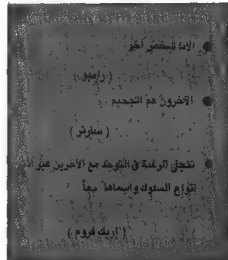 الأنا شخص آخر
( رامبو )
الآخرون هم الجحيم
( سارتر )
تتجلى الرغبة في التوحد مع الآخرين عبر
أنواع السلوك وأسماها حباً
( اريك فروم )